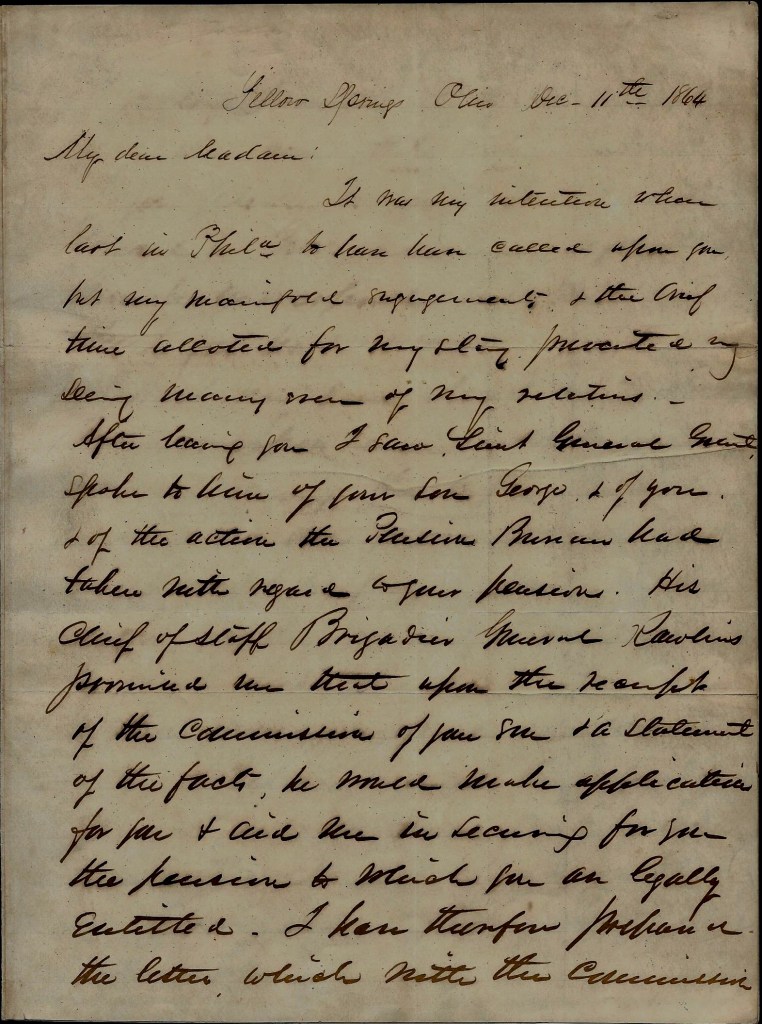 Yellow Springs Ohio Dec - 11th 1864
My dear Madam:
It was my intention when
last in Phila to have have called upon you,
but my manifold engagements, & the brief
time alloted for my stay prevented my
seeing many even of my relatives. -
After leaving you I saw Lieut General Grant,
spoke to him of your son George, & of you.
& of the action the Pension Bureau had
taken with regard to your pension. His
Chief of Staff Brigadier General Rawlins
promised me that upon the receipt
of the Commission of your son & a statement
of the facts, he would make application
for you & aid me in securing for you
the pension to which you are legally
entitled. I have therefore prepared
the letter, which with the Commission